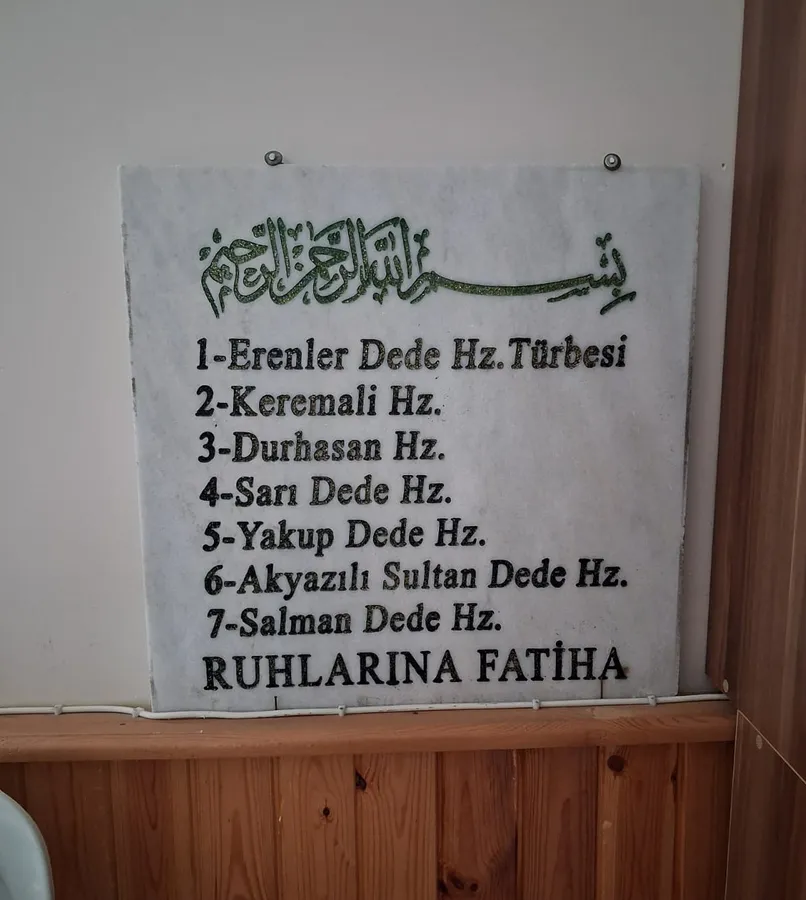 بسم الله الرحمن الرحيم
1-Erenler Dede Hz. Türbesi
2-Keremali Hz.
3-Durhasan Hz.
4-Sarı Dede Hz.
5-Yakup Dede Hz.
6-Akyazılı Sultan Dede Hz.
7-Salman Dede Hz.
RUHLARINA FATİHA